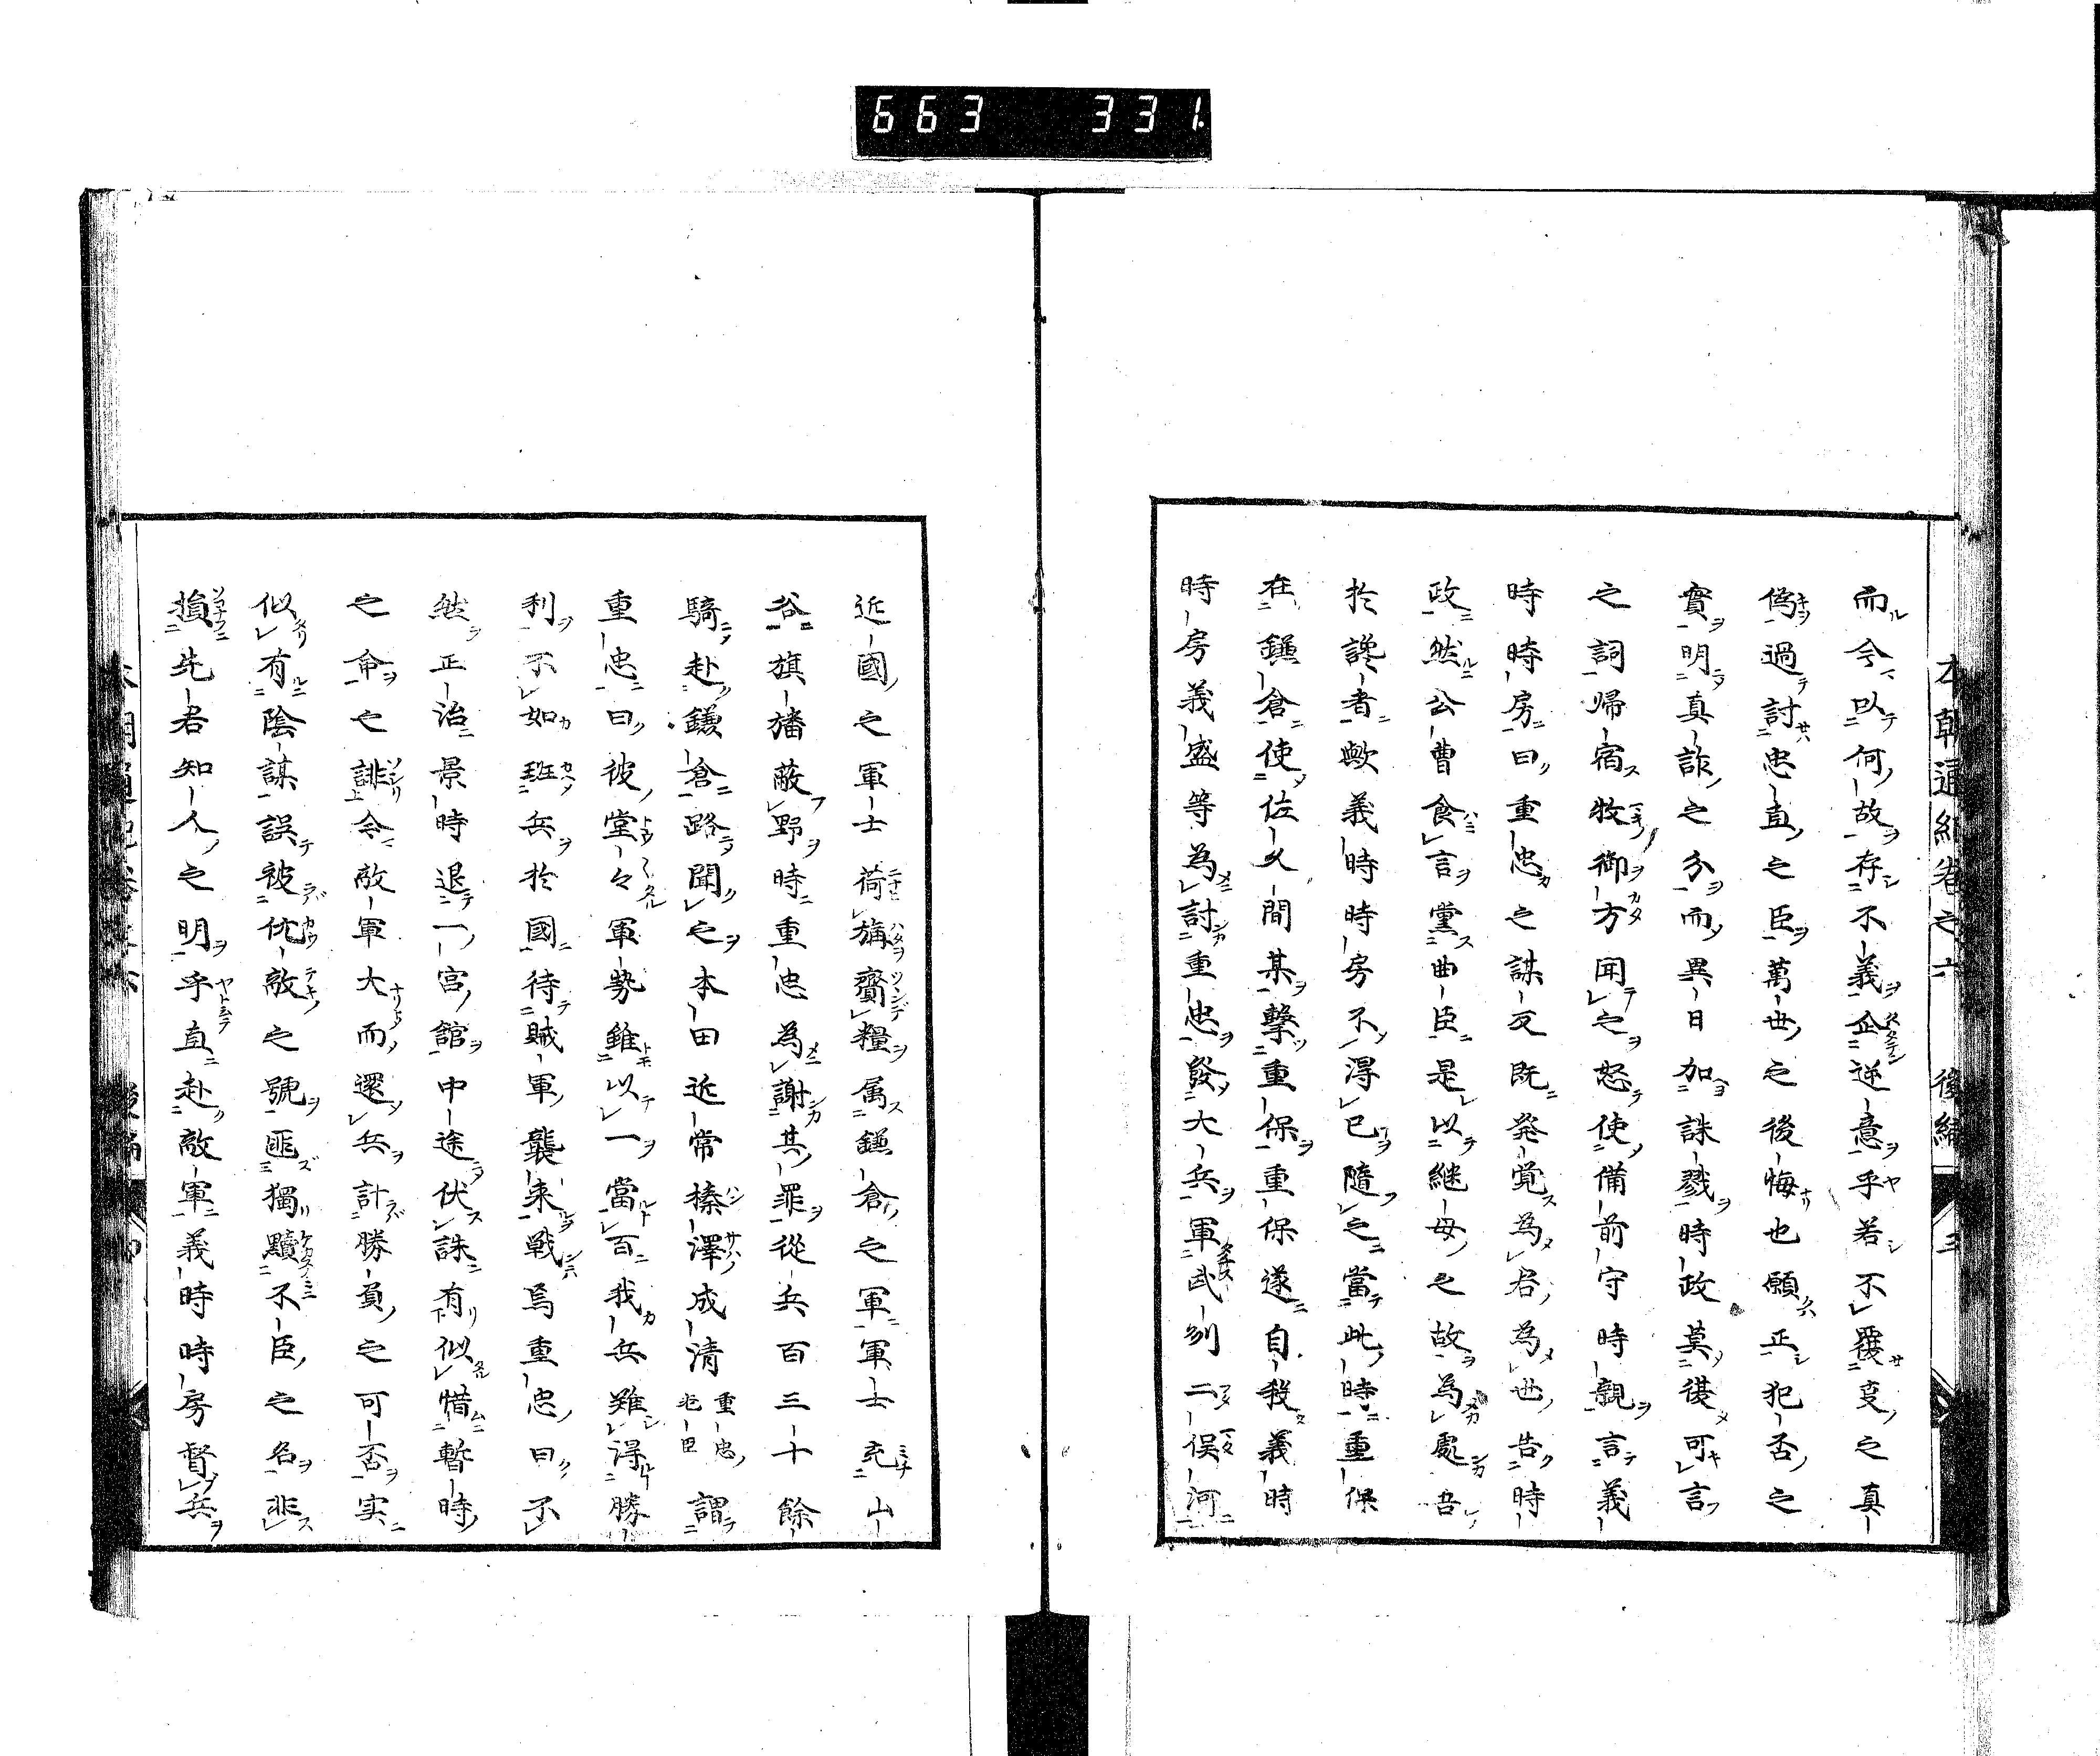 663 331
本朝通紀巻之六 後編 三
而今以何故存不義企逆意乎若不覆之真
偽過討忠直之臣萬世之後悔也願正犯否之
實明真詐之分而異日加誅戮時政莫復可言
之詞帰宿牧御方聞之怒使備前守時親言義
時時房曰重忠之謀反既発覚為君為世告時
政然公曹食言黨曲臣是以継母之故為處吾
於讒者歟義時時房不得已隨之當此時重保
在鎌倉使佐久間某擊重保重保遂自殺義時
時房義盛等為討重忠發大兵軍武州二俣河
近國之軍士荷旗齎糧属鎌倉之軍軍士充山
谷旗旛蔽野時重忠為謝其罪從兵百三十餘
騎赴鎌倉路聞之本田近常榛澤成清重忠臣謂
重忠曰彼堂々軍勢雖以一當百我兵難得勝
利不如班兵於國待賊軍襲来戦焉重忠曰不
然正治景時退一宮館中途伏誅有似惜暫時
之命之誹今敵軍大而還兵計勝負之可否実
似有陰謀誤被仇敵之號匪獨黷不臣之名非
損先君知人之明乎直赴敵軍義時時房督兵